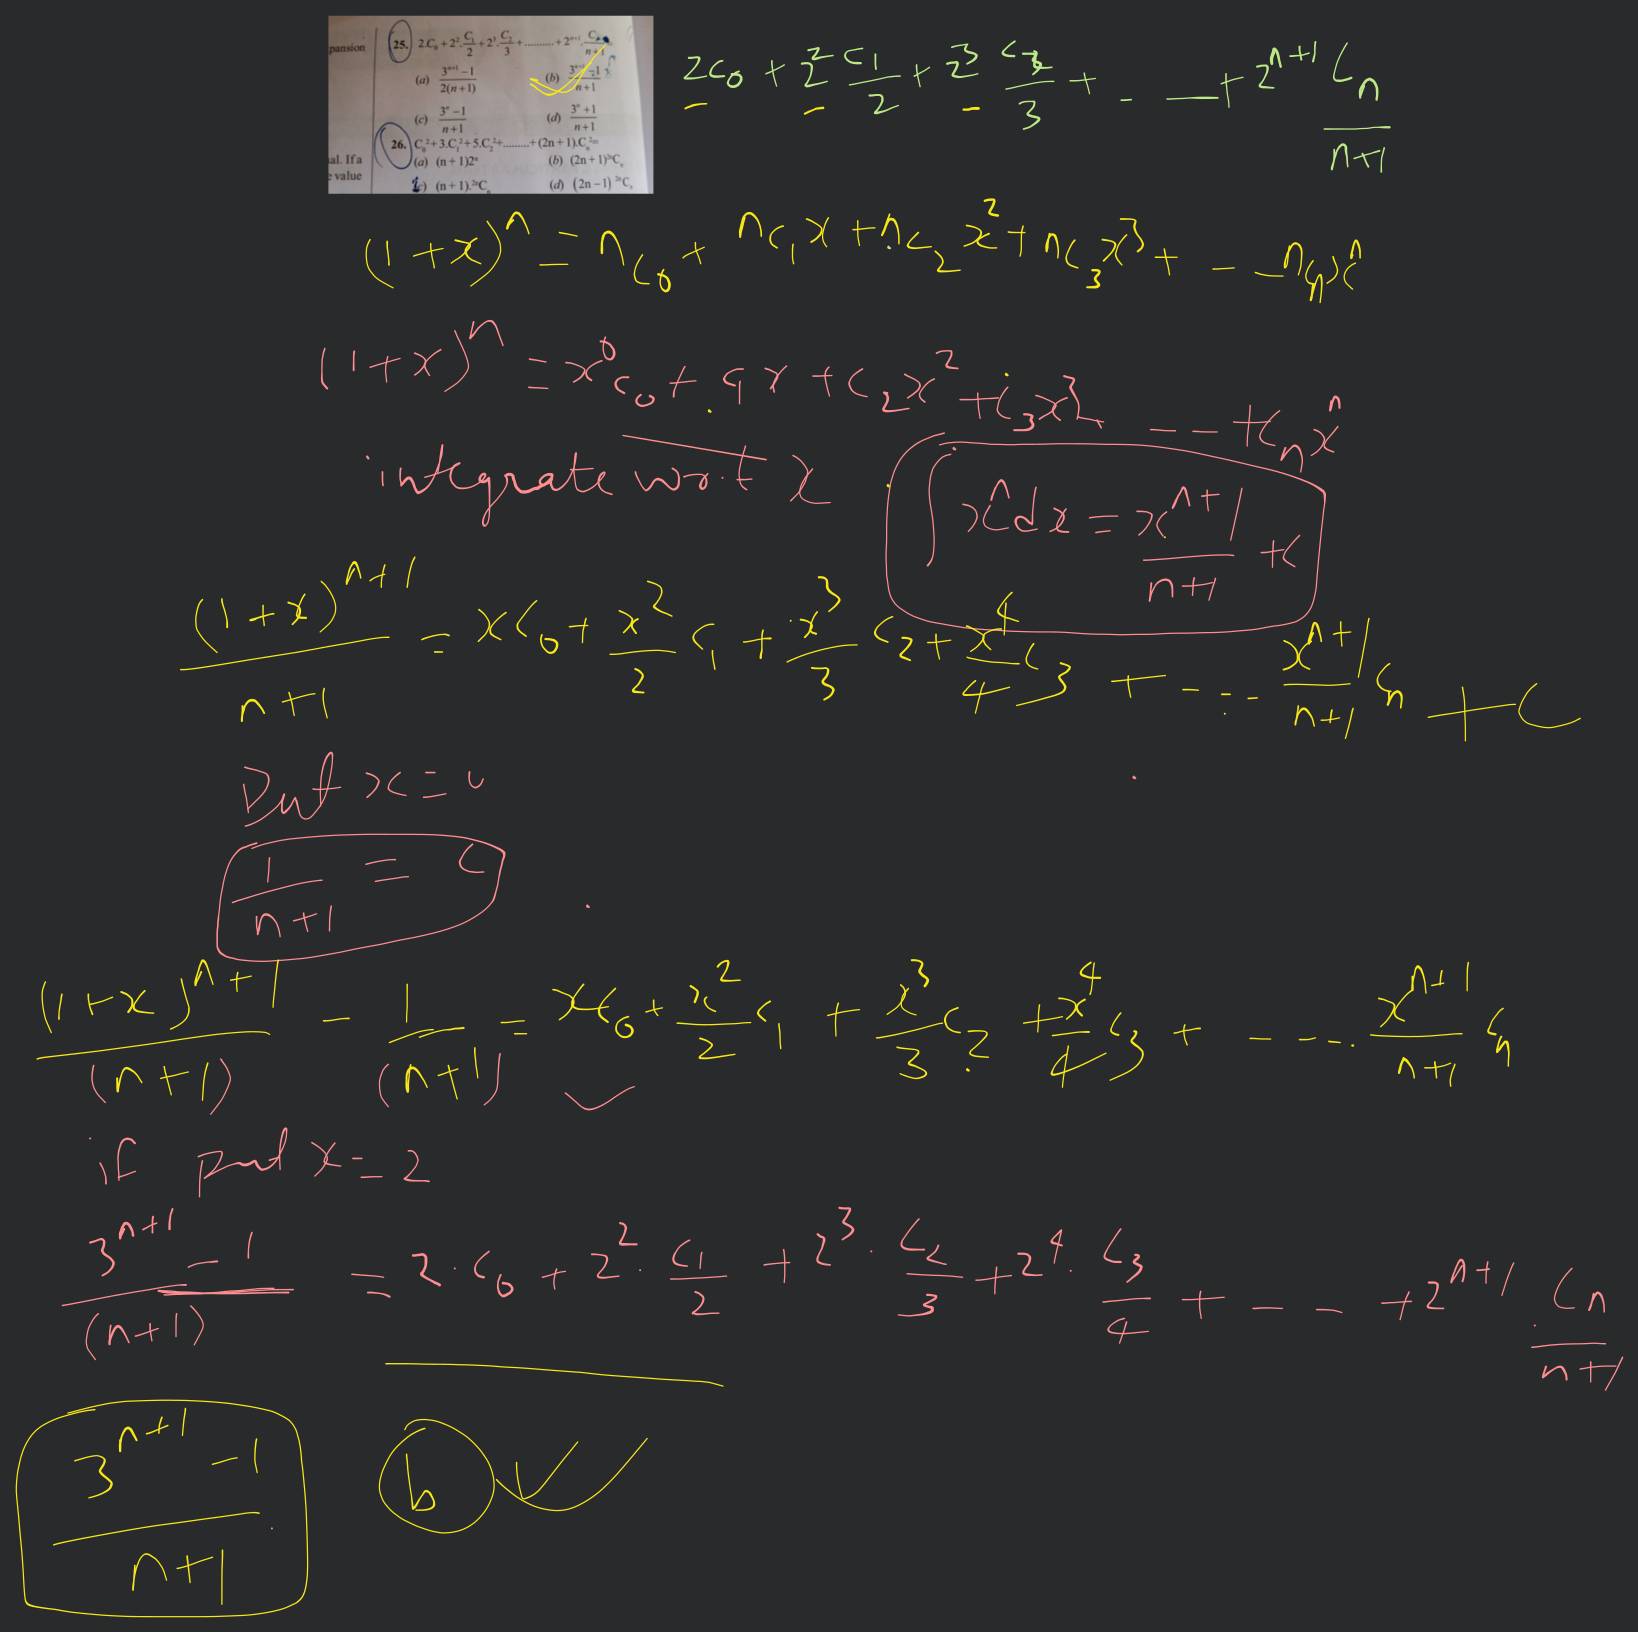 pansion
25. 2.C₀ + 2².C₁/2 + 2³.C₂/3 + .......... + 2ⁿ⁺¹.
(a) 3ⁿ⁺¹ – 1 / 2(n + 1)
(b) 3ⁿ⁺¹ – 1 / n + 1
(c) 3ⁿ – 1 / n + 1
(d) 3ⁿ + 1 / n + 1
26. C₀² + 3.C₁² + 5.C₂² + ......... + (2n + 1).Cₙ² =
al. If a
(a) (n + 1)2ⁿ
(b) (2n + 1)²ⁿCₙ
e value
c) (n + 1).²ⁿCₙ
(d) (2n – 1) ²ⁿCₙ
2C₀ + 2² C₁/2 + 2³ C₂/3 + - — + 2ⁿ⁺¹ Cₙ/n+1
(1+x)ⁿ = nC₀ + nC₁x + nC₂x² + nC₃x³ + - - nCₙxⁿ
(1+x)ⁿ = x⁰C₀ + C₁x + C₂x² + C₃x³ - - + Cₙxⁿ
integrate w.r.t x
∫xⁿdx = xⁿ⁺¹/n+1 + C
(1+x)ⁿ⁺¹/n+1 = xC₀ + x²/2 C₁ + x³/3 C₂ + x⁴/4 C₃ + - - - xⁿ⁺¹/n+1 Cₙ + C
Put x = 0
1/n+1 = C
(1+x)ⁿ⁺¹/(n+1) - 1/(n+1) = xC₀ + x²/2 C₁ + x³/3 C₂ + x⁴/4 C₃ + - - - . xⁿ⁺¹/n+1 Cₙ
if put x = 2
3ⁿ⁺¹ - 1/(n+1) = 2.C₀ + 2². C₁/2 + 2³. C₂/3 + 2⁴. C₃/4 + - - + 2ⁿ⁺¹ Cₙ/n+1
3ⁿ⁺¹ - 1/n+1 b